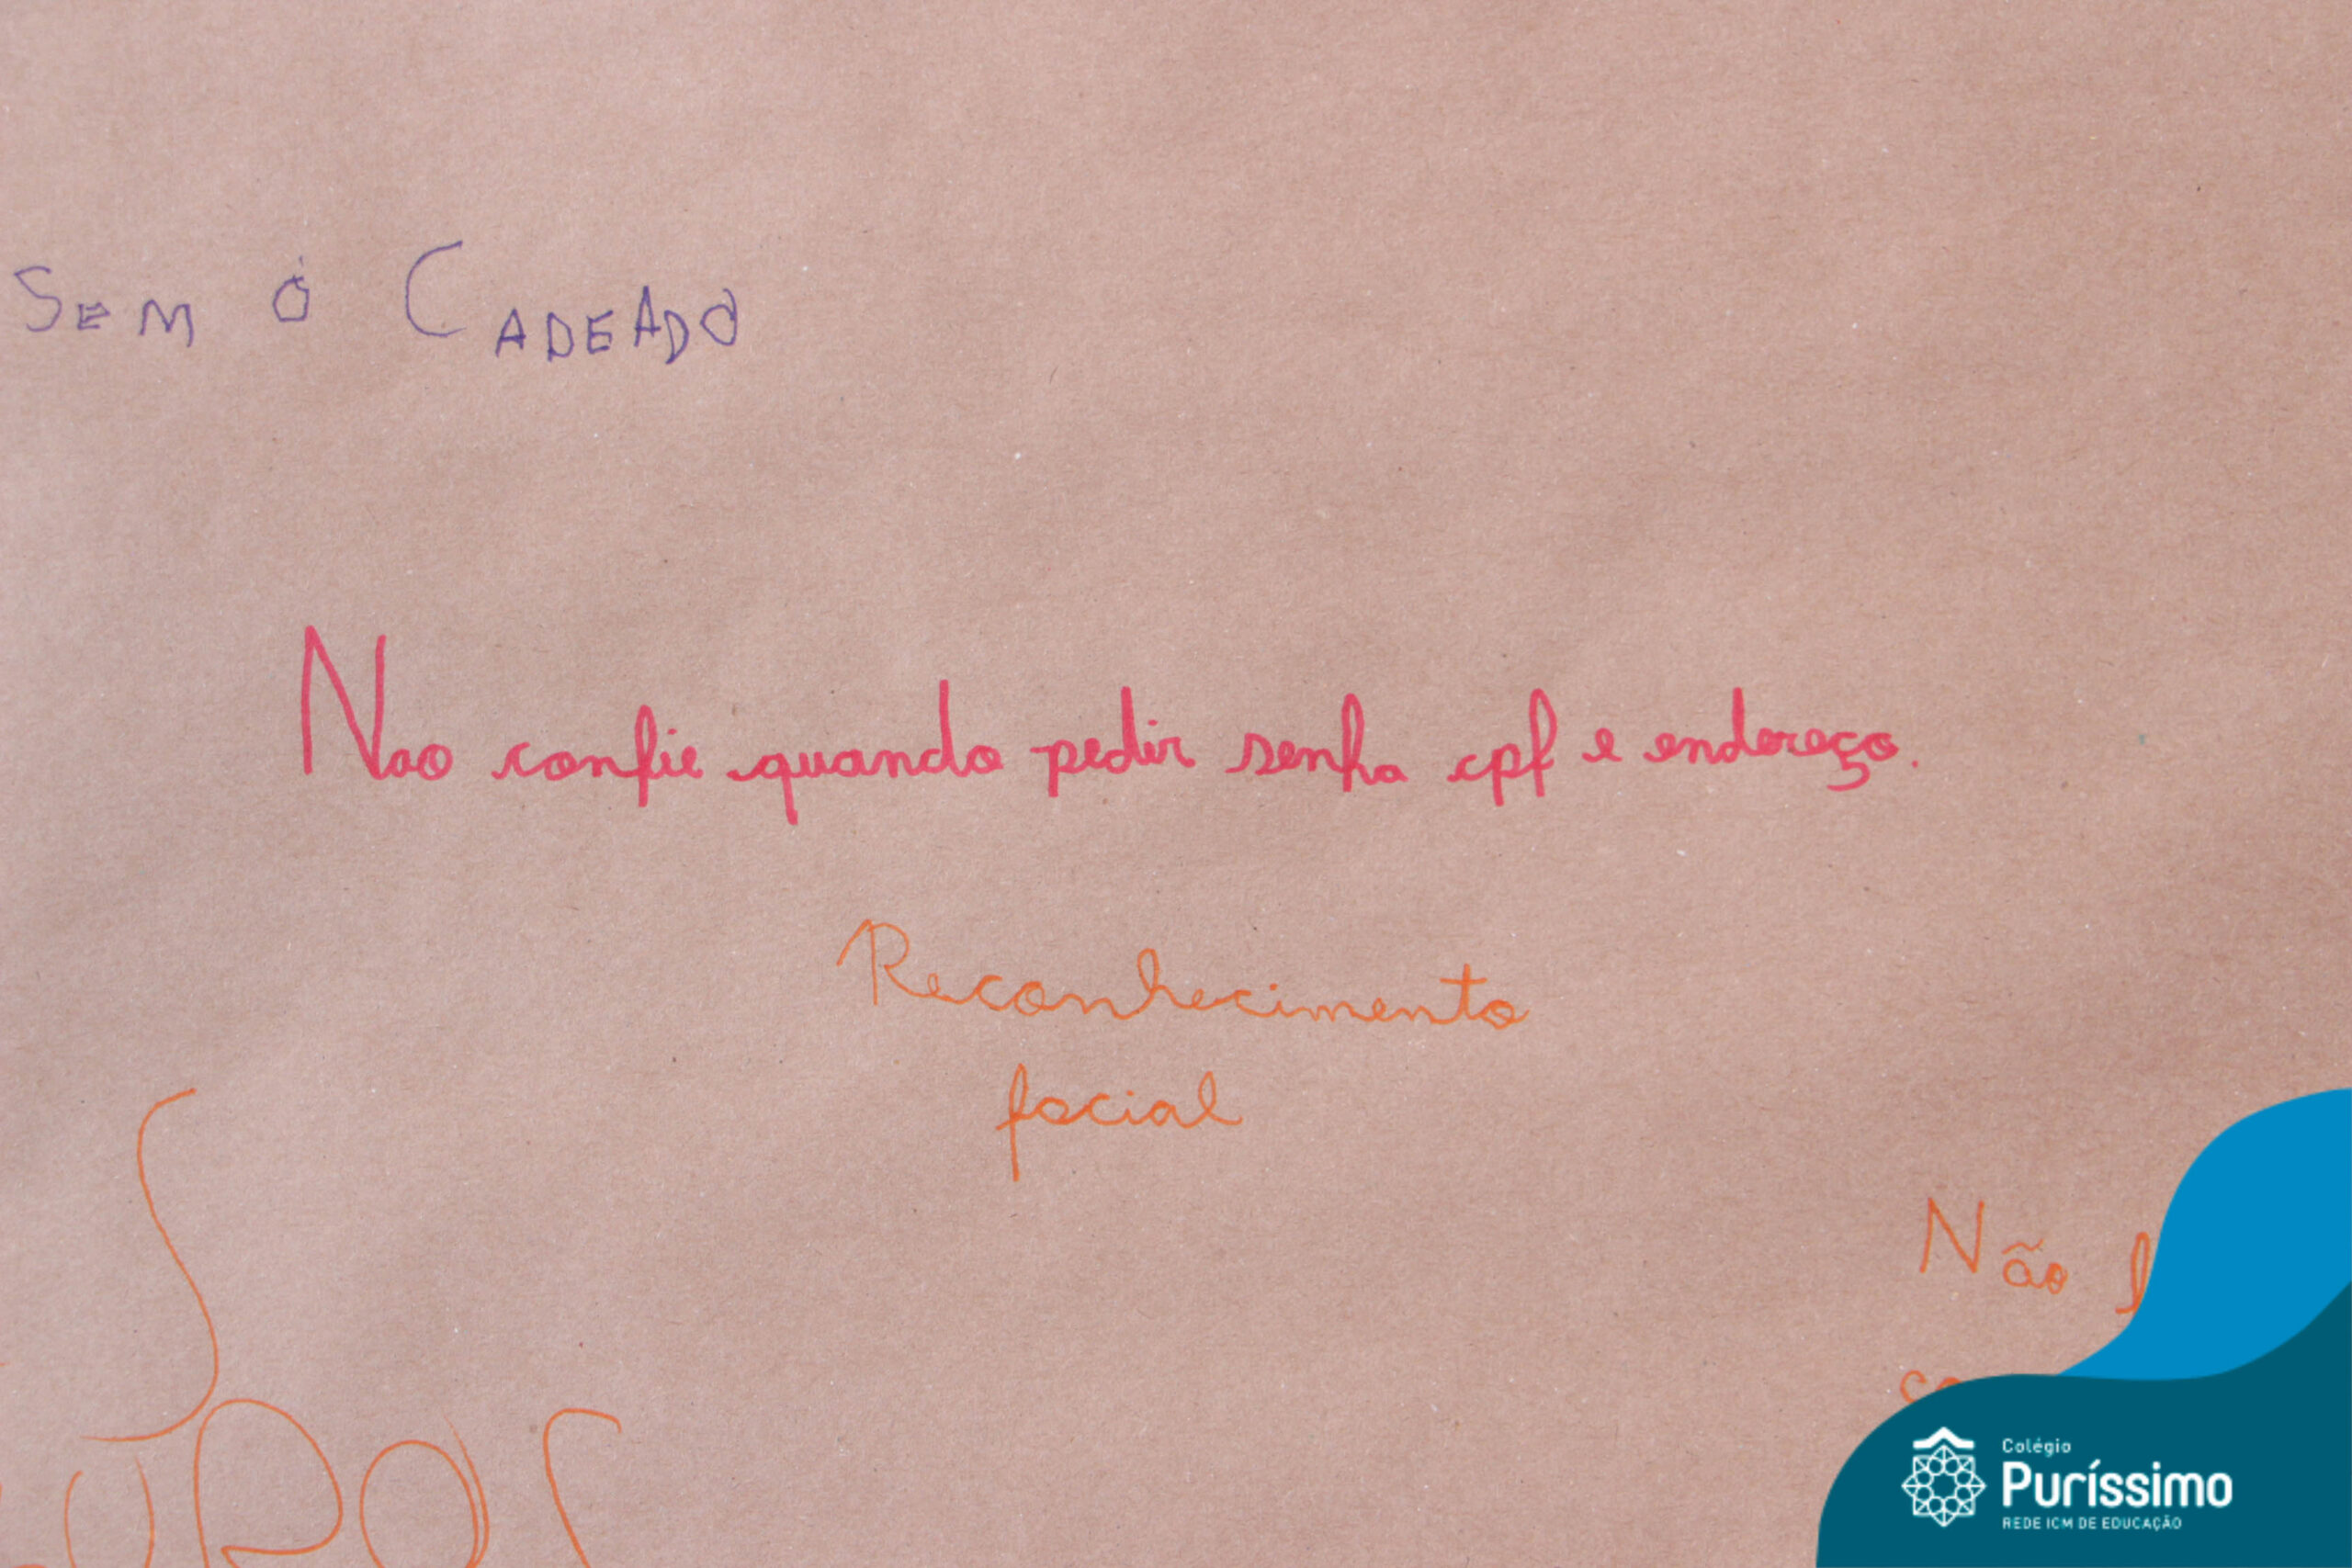 SEM O CADEADO
Nao confie quando pedir senha cpf e endereço.
Reconhecimento
facial
Não
Colégio
Puríssimo
REDE ICM DE EDUCAÇÃO